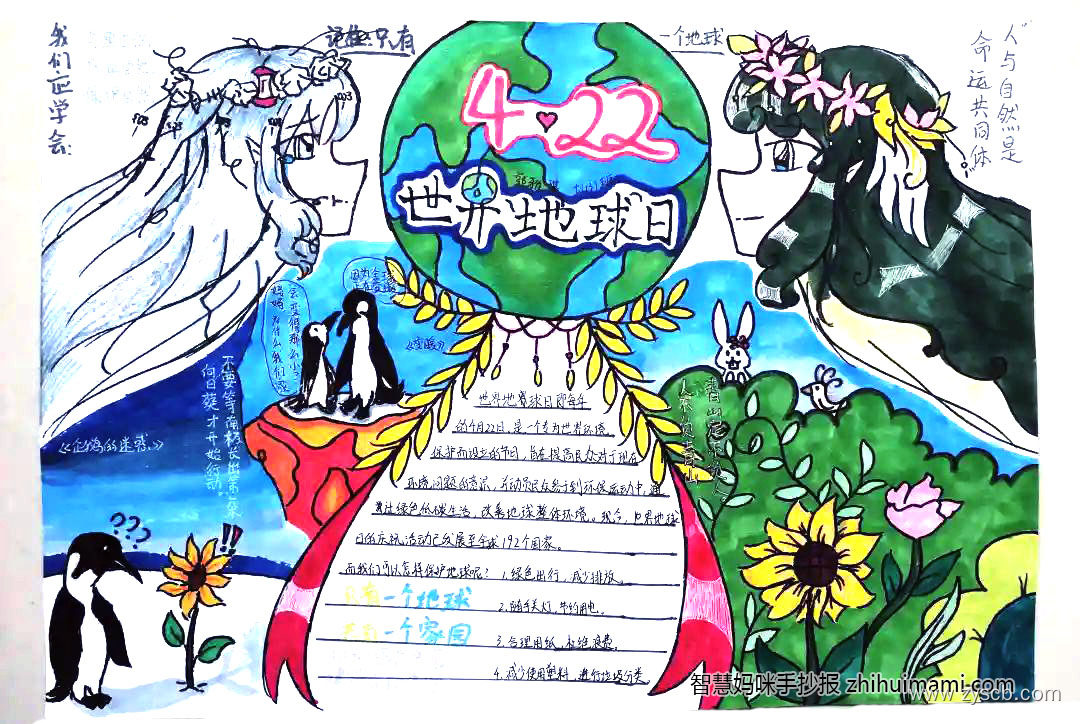 我们应学会:
只有
一个地球
"人与自然是
命运共同体"
4·22
世界地球日
因为全球
妈妈 为什么我们
会变得那么小?
《变暖》
《企鹅的迷惑》
不要等南极长出第一菜
向日葵才开始行动。
青山
人不负青山
???
!!
世界地球日即每年
的4月22日,是一个专为世界环境
保护而设立的节日,旨在提高民众对于现有
环境问题的意识,并动员民众参与到环保运动中,通
过绿色低碳生活,改善地球整体环境。现今,世界地球
日的庆祝活动已发展至全球192个国家。
而我们可以怎样保护地球呢?1.绿色出行,减少排放。
只有一个地球
2.随手关灯,节约用电。
一个家园
3.合理用纸,杜绝浪费。
4.减少使用塑料,进行垃圾分类。
智慧妈咪手抄报 zhihuimami.com
www.zyscb.com